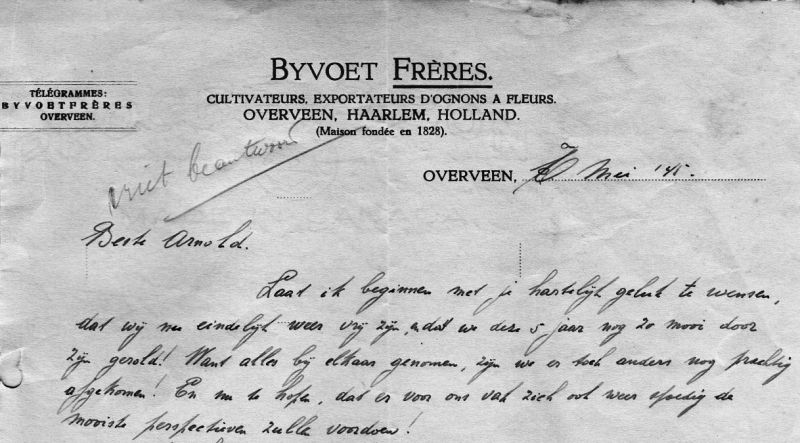 BYVOET FRÈRES.
CULTIVATEURS, EXPORTATEURS D'OGNONS À FLEURS.
OVERVEEN, HAARLEM, HOLLAND.
(Maison fondée en 1828).
TÉLÉGRAMMES:
BYVOETFRÈRES
OVERVEEN.
niet beantwoord
OVERVEEN, Mei '45.
Beste Arnold.
Laat ik beginnen met je hartelijk geluk te wensen,
dat wij nu eindelijk weer vrij zijn, en dat we deze 5 jaar nog zo mooi door
zijn gerold! Want alles bij elkaar genomen, zijn we er toch anders nog prachtig
afgekomen! En nu te hopen, dat er voor ons vak zich ook weer spoedig de
mooiste perspectieven zullen voordoen!